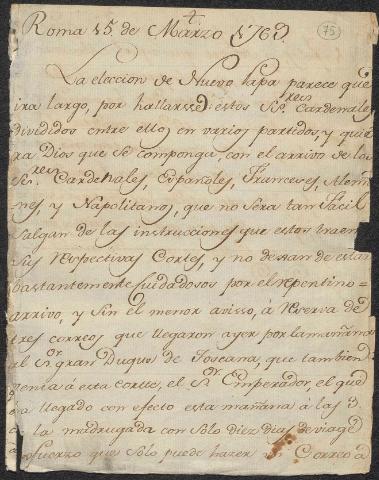 75
Roma 15 de Marzo 1769.
La eleccion de Nuevo Papa parece que
ira largo, por hallarse estos Sres. Cardenales
divididos entre ellos en varios partidos, y quie
ra Dios que se componga, con el arrivo de los
Sres. Cardenales, Españoles, Franceses, Alema
nes, y Napolitanos, que no sera tan facil
salgan de las instrucciones que estos traen
sus respectivas Cortes, y no dexan de estar
bastantemente cuidadosos por el repentino
arrivo, y sin el menor avisso, á reserva de
tres correos que llegaron ayer por la mañana
al Sr. gran Duque de Toscana, que tambien
venia á esta corte, el Sr. Emperador el que
ha llegado con efecto esta mañana á las 3
la madrugada con solo diez dias de viage
esfuerzo que solo puede hazer Correo á